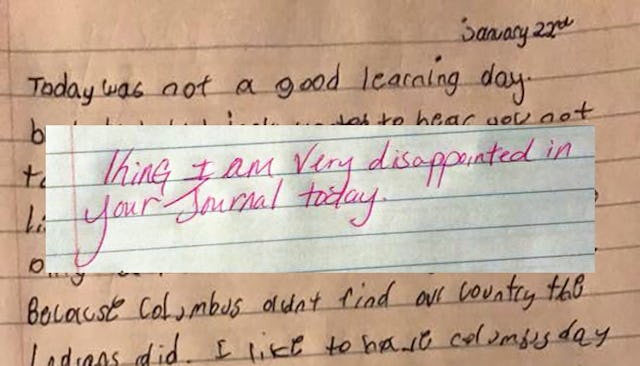 January 22nd
Today was not a good learning day.
to hear you not
King I am very disappointed in
your Journal today.
Because Columbus didnt find our country the
Indians did. I like to have columbus day